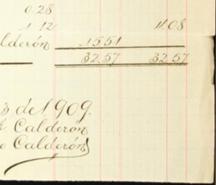 0.28
1.12 11.08
lderón 15.51
32.57 32.57
3 de 1909.
Calderon
o Calderón